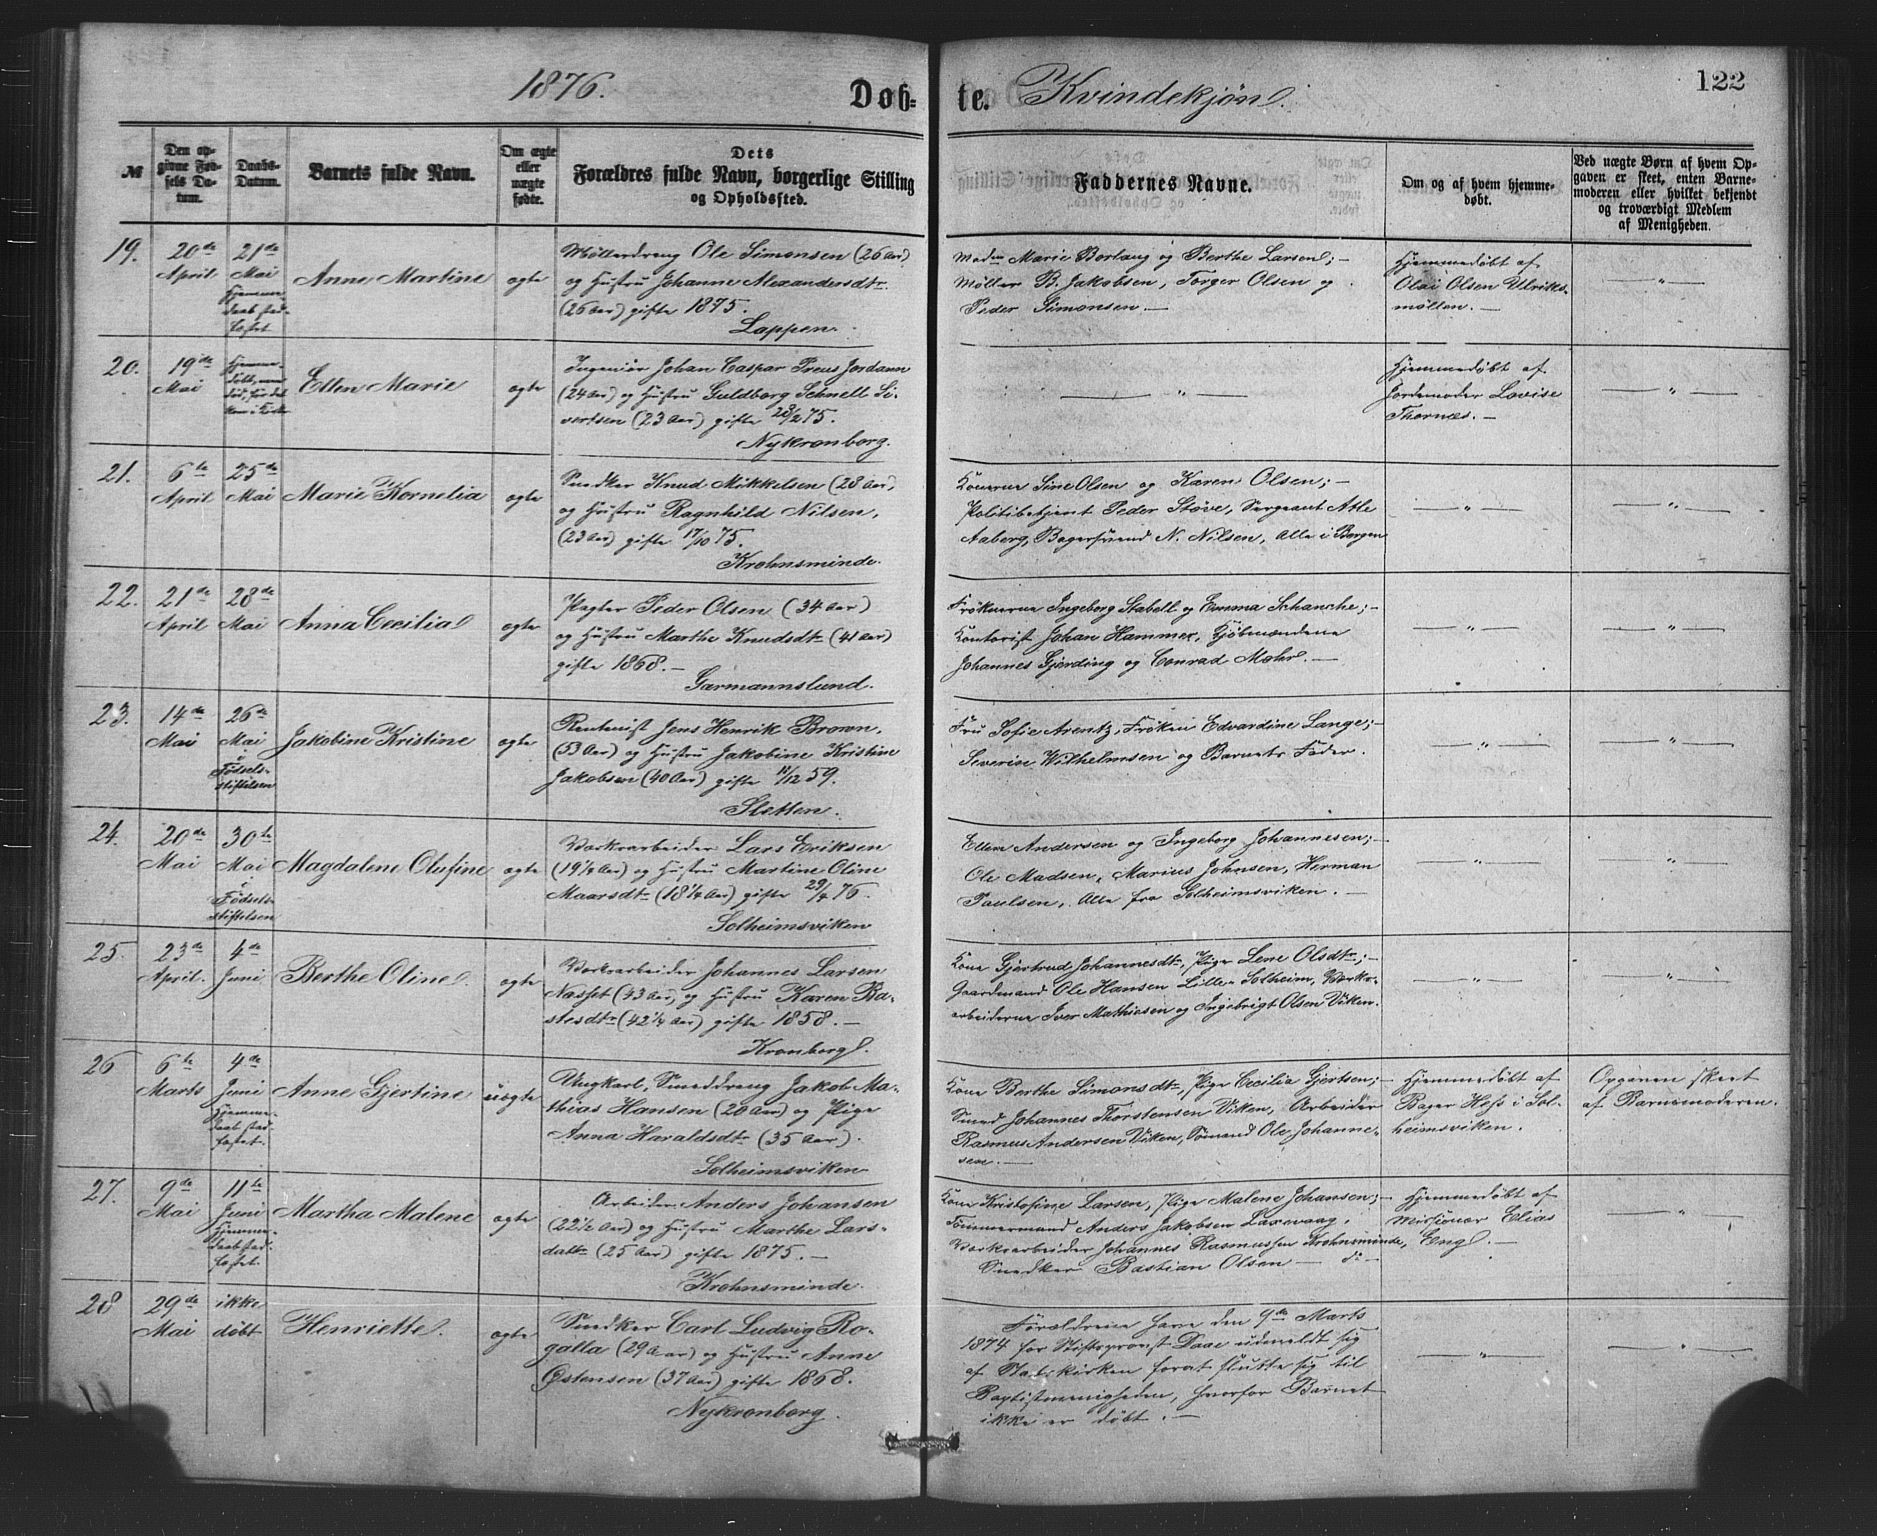 1876.
Døbte.
Kvindekjøn.
122
№
Den opgivne Fødsels Datum.
Daabs-Datum.
Barnets fulde Navn.
Om ægte eller uægte fødte.
Dets Forældres fulde Navn, borgerlige Stilling og Opholdssted.
Faddernes Navne.
Om og af hvem hjemmedøbt.
Ved uægte Børn af hvem Opgaven er skeet, enten Barnemoderen eller hvilket bekjendt og troværdigt Medlem af Menigheden.
19.
20de April
21de Mai Hjemmedaab stadfæstet
Anne Martine
ægte
Møllerdreng Ole Simonsen (26 Aar)
og Hustru Johanne Alexandersdtr
(26 Aar) gifte 1875.
Lappen.
Mad. Marie Borlaug og Berthe Larsen; —
Møller B. Jakobsen, Torger Olsen og
Peder Simonsen. —
Hjemmedøbt af
Olai Olsen Ulriks-
møllen. —
— " —
20.
19de Mai
Hjemmedøbt, men død, før det kom i Kirke
Ellen Marie
ægte
Ingeniør Johan Caspar Preus Jordann
(24 Aar) og Hustru Guldborg Schnell Si-
vertsen (23 Aar) gifte 28/2 75.
Nykronborg.
— " —
Hjemmedøbt af
Jordemoder Lovise
Thornæs. —
— " —
21.
6te April
25de Mai
Marie Kornelia
ægte
Snedker Knud Mikkelsen (28 Aar,
og Hustru Ragnhild Nilsen,
(23 Aar) gifte 17/10 75.
Krohnsminde.
Konerne Sine Olsen og Karen Olsen; —
Politibetjent Peder Støve, Sergeant Atle
Aaberg, Bagersvend N. Nilsen, Alle i Bergen
— " —
— " —
22.
21de April
28de Mai
Anna Cecilia
ægte
Pagter Peder Olsen (34 Aar)
og Hustru Marthe Knudsdtr (41 Aar)
gifte 1868. —
Garmannslund.
Frøknerne Ingeborg Stabell og Emma Schanche; —
Kontorist Johan Hammer, Kjøbmændene
Johannes Gjerding og Conrad Mohr. —
— " —
— " —
23.
14de Mai
26de Mai i Fødselsstiftelsen
Jakobine Kristine
ægte
Rentenist Jens Henrik Brown.
(53 Aar) og Hustru Jakobine Kristine
Jakobsen (40 Aar) gifte 11/12 59.
Sletten.
Fru Sofie Arentz, Frøken Edvardine Lange; —
Severin Wilhelmsen og Barnets Fader.
— " —
— " —
24.
20de Mai
30te Mai i Fødselsstiftelsen
Magdalene Olufine
ægte
Værkarbeider Lars Eriksen
(19 1/4 Aar) og Hustru Martine Oline
Maarsdtr (18 1/4 Aar) gifte 29/4 76.
Solheimsviken
Ellen Andersen og Ingeborg Johannesen; —
Ole Madsen, Marius Johnsen, Herman
Paulsen, Alle fra Solheimsviken. —
— " —
— " —
25.
23de April.
4de Juni
Berthe Oline
ægte
Værkarbeider Johannes Larsen
Nasset (43 Aar) og Hustru Karen Ba-
stesdtr (42 1/4 Aar) gifte 1858. —
Kronborg.
Kone Gjertrud Johannesdtr, Pige Lene Olsdtr; —
Gaardmand Ole Hansen Lille-Solheim, Værks-
arbeiderne Iver Mathiesen og Ingebrigt Olsen Viken.
— " —
— " —
26
6te Marts
4de Juni Hjemmedaab stadfæstet.
Anne Gjertine
uægte
Ungkarl, Smeddreng Jakob Ma-
thias Hansen (20 Aar) og Pige
Anna Haraldsdtr (35 Aar).
Solheimsviken
Kone Berthe Simonsdtr, Pige Cecilia Gjertsen; —
Smed Johannes Thorstensen Viken, Arbeider
Rasmus Andersen Viken, Sømand Ole Johanne-
sen. —
Hjemmedøbt af
Bager Hess i Sol-
heimsviken.
Opgaven skeet
af Barnemoderen.
27.
9de Mai
11te Juni Hjemmedaab stadfæstet.
Martha Malene
ægte
Arbeider Anders Johansen
(22 1/2 Aar) og Hustru Marthe Lars-
datter (25 Aar) gifte 1875. —
Krohnsminde.
Kone Kristofine Larsen, Pige Malene Johansen; —
Tømmermand Anders Jakobsen Laxevaag,
Værkarbeider Johannes Rasmussen Krohnsminde,
Snedker Bastian Olsen — do —
Hjemmedøbt af
Missionær Elias
Eng. —
— " —
28
29de Mai
ikke døbt
Henriette.
ægte
Snedker Carl Ludvig Ro-
galla (29 Aar) og Hustru Anne
Østensen (37 Aar) gifte 1868.
Nykronborg.
Forældrene have den 9de Marts
1874 for Stiftsprovst Daae udmeldt sig
af Statskirken forat slutte sig til
Baptistmenigheden, hvorfor Barnet
ikke er døbt. —
— " —
— " —